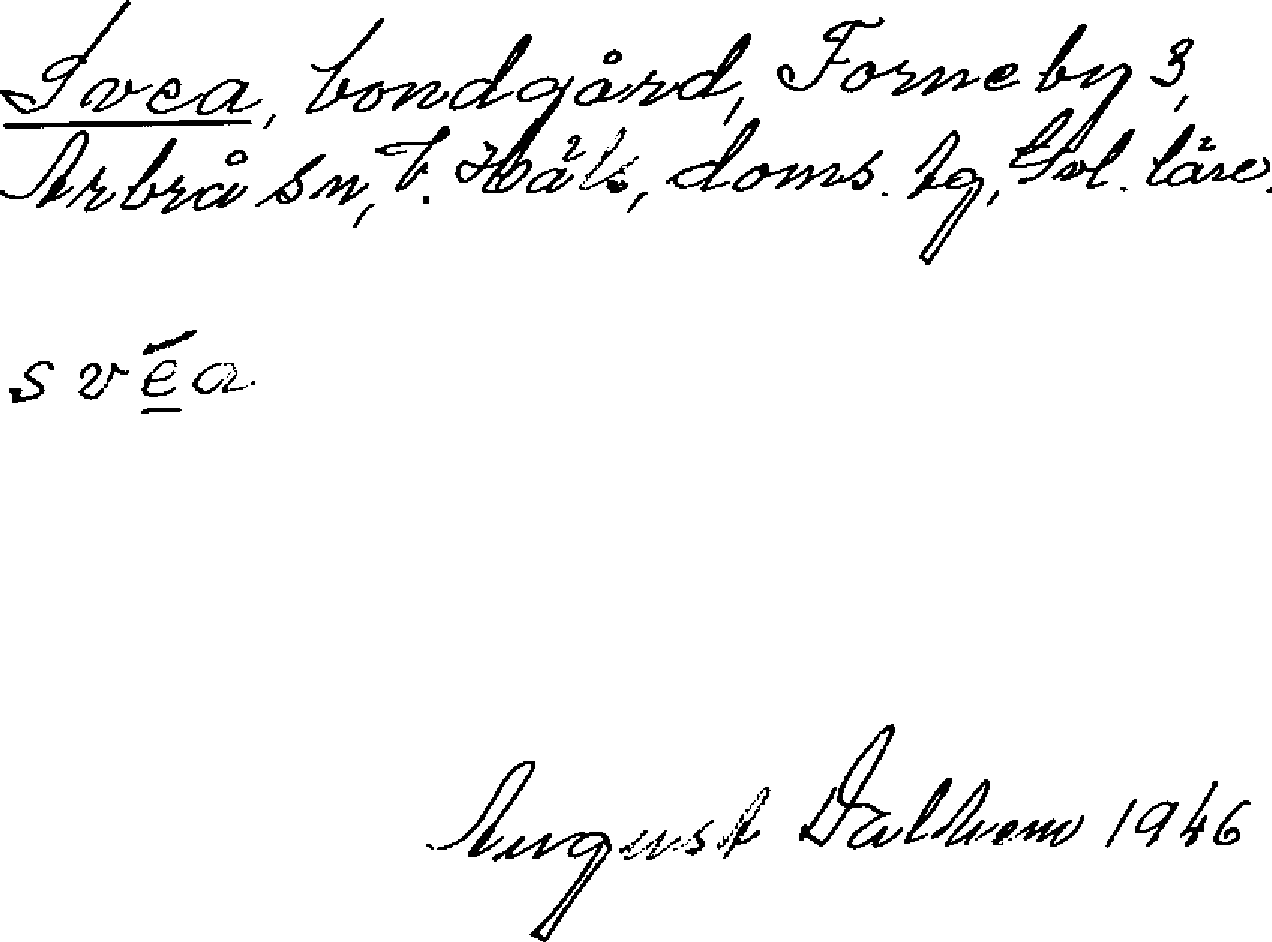 Svea, bondgård, Forneby 3,
Arbrå sn, V. Häls. doms. tg, Gvl. län.
svéa
August Dalhem 1946